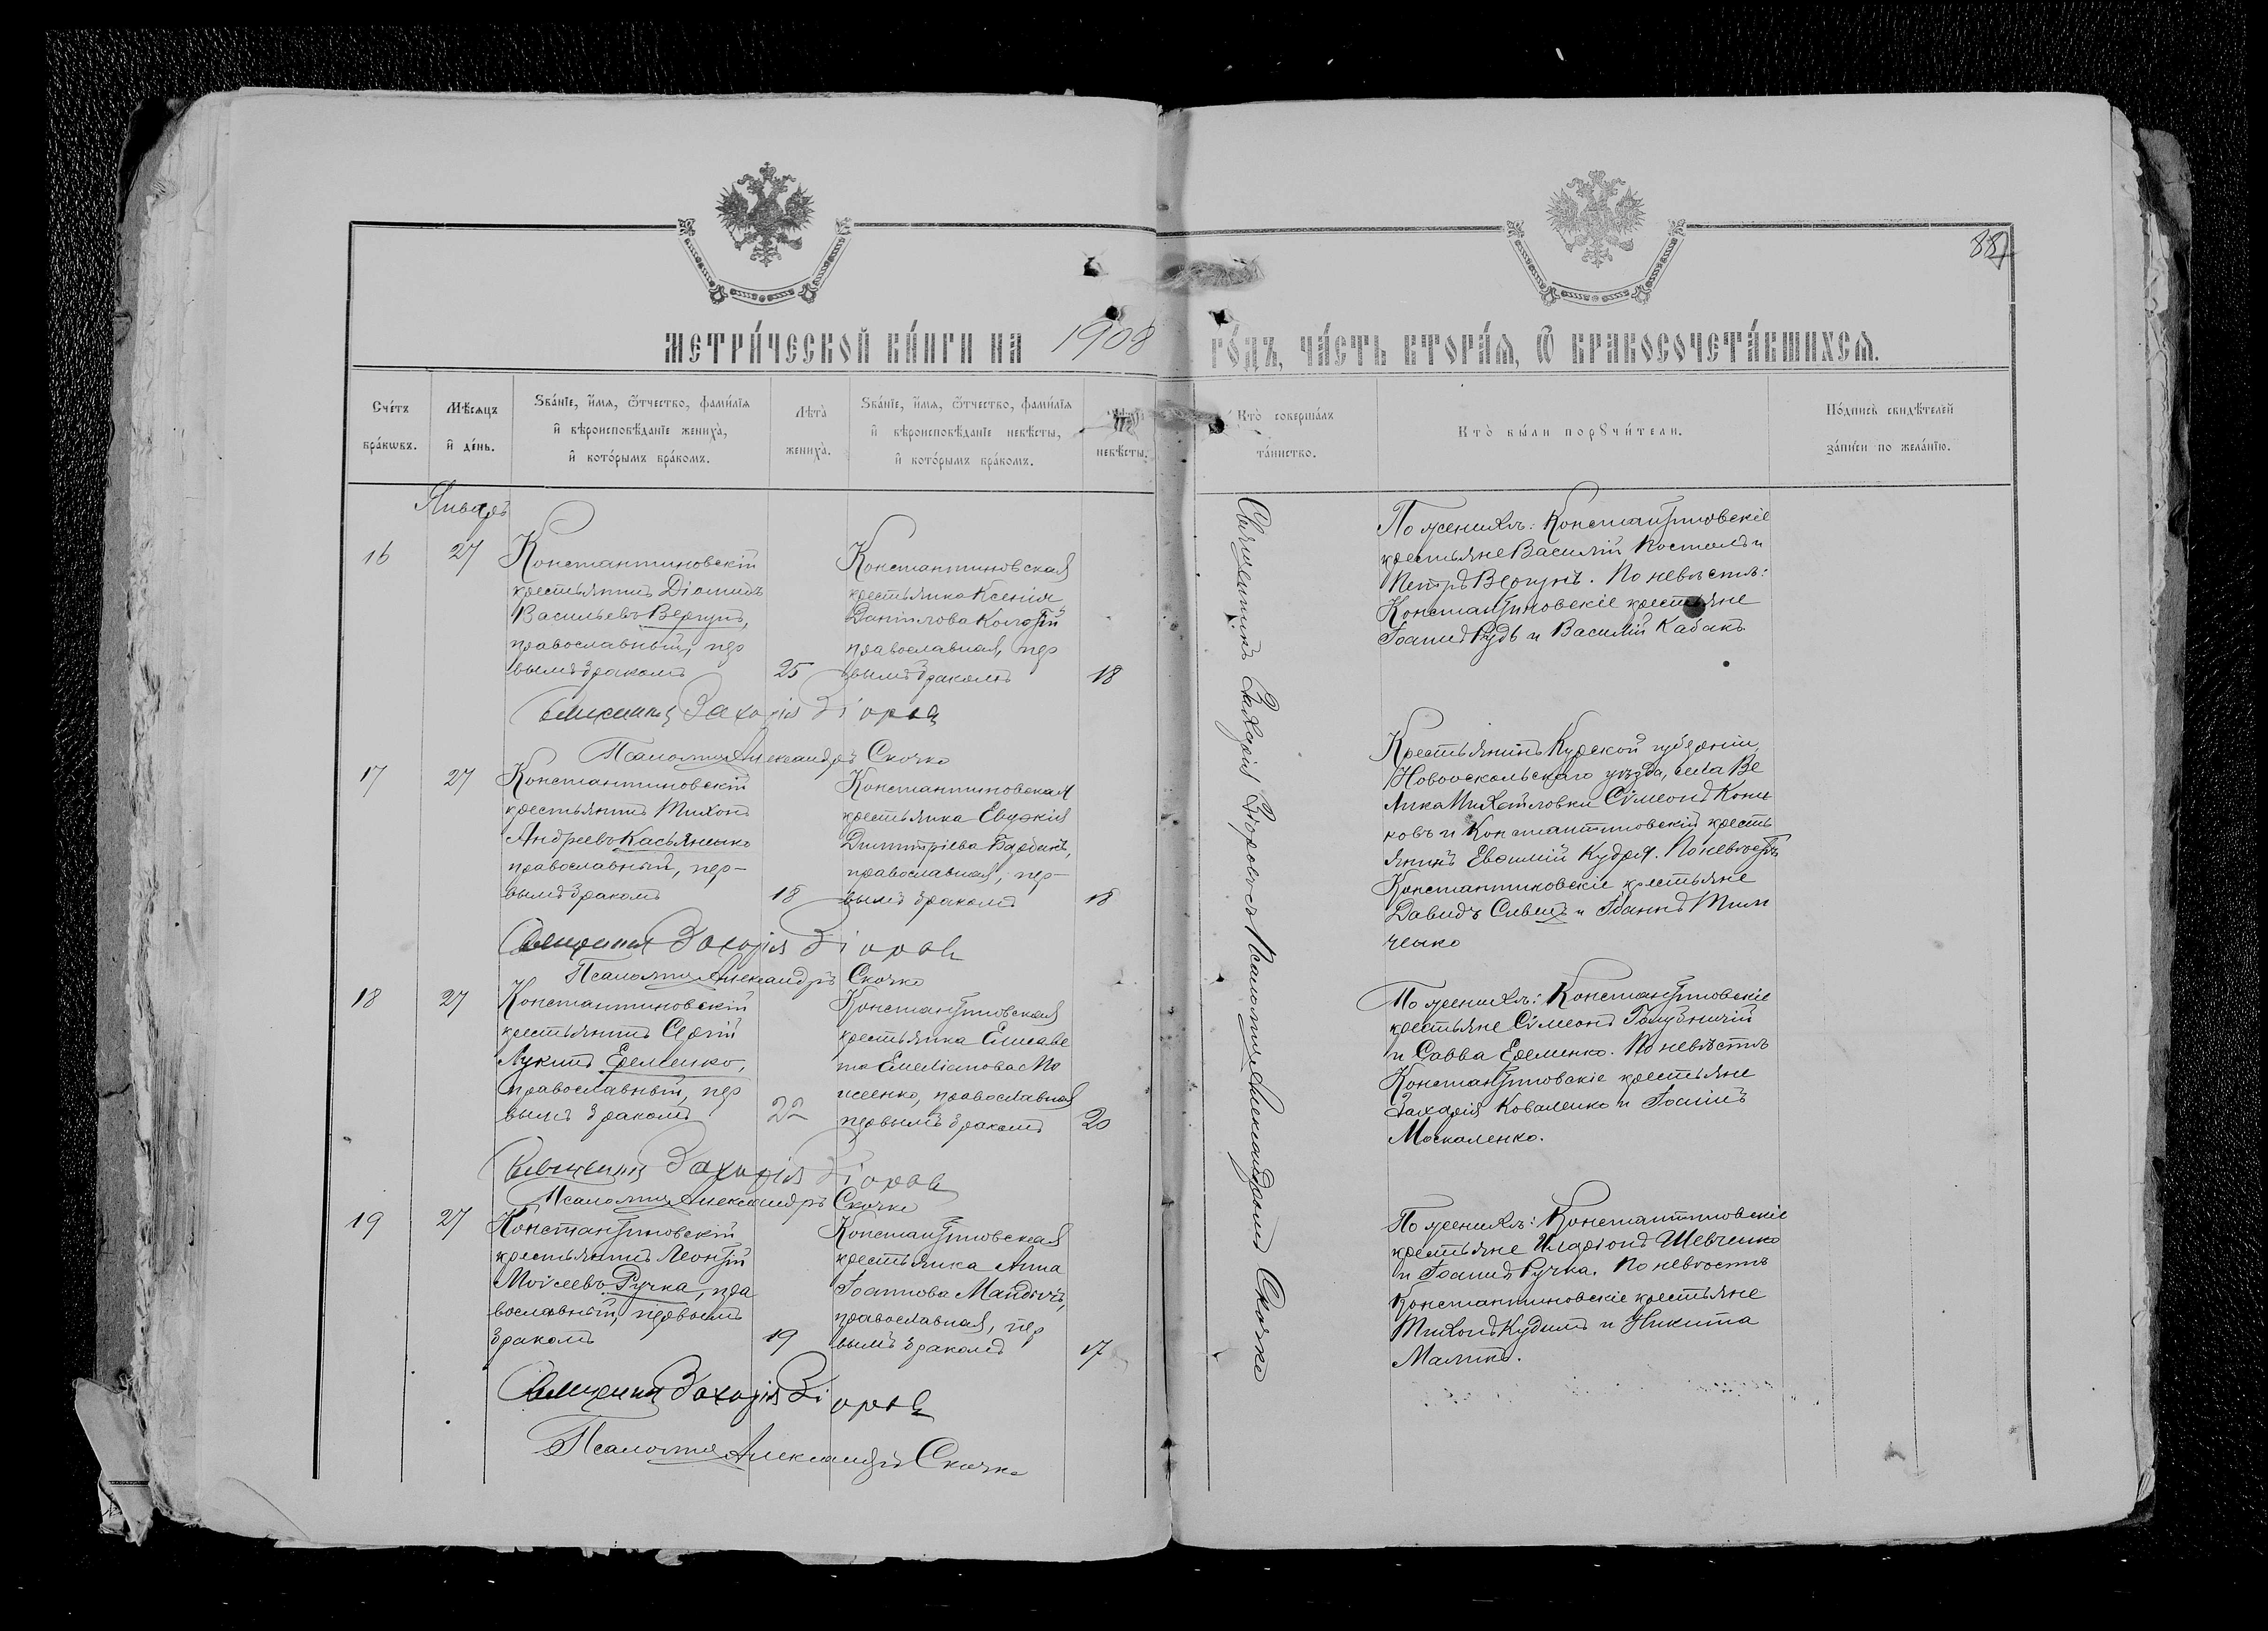 88
МЕТРИ́ЧЕСКОЙ КНИ́ГИ НА 1908 ГО́ДЪ, ЧА́СТЬ ВТОРА́Я, Ѿ БРАКОСОЧЕТА́ВШИХСЯ.
Сче́тъ бра́кѡвъ.
Мѣ́сяцъ и҆ де́нь.
Зва́нїе, и҆́мя, ѻ҆́тчество, фами́лїя
и҆ вѣроисповѣ́данїе жениха̀,
и҆ кото́рымъ бра́комъ.
Лѣта̀ жениха̀.
Зва́нїе, и҆́мя, ѻ҆́тчество, фами́лїя
и҆ вѣроисповѣ́данїе невѣ́сты,
и҆ кото́рымъ бра́комъ.
невѣ́сты.
Кто̀ соверша́лъ
та́инство.
Кто̀ бы́ли порꙋчи́тели.
По́дпись свидѣ́телей
за́писи по жела́нїю.
Январь
16
27
Константиновскій
крестьянинъ Діомидъ
Васильевъ Вергунъ,
православный, пер
вымъ бракомъ
25
Константиновская
крестьянка Ксенія
Даніилова
православная, пер
вымъ бракомъ
18
По женихѣ: Константиновскіе
крестьяне Василій и
Петръ Вергунъ. По невѣстѣ:
Константиновскіе крестьяне
Іоаннъ Рудь и Василій Кабакъ
Священникъ Захарія
Псаломщ Александръ Скочко
17
27
Константиновскій
крестьянинъ Тихонъ
Андреевъ Касьяненко
православный, пер-
вымъ бракомъ
18
Константиновская
крестьянка Евдокія
Димитріева
православная, пер-
вымъ бракомъ
18
Крестьянинъ Курской губерніи,
Новооскольскаго уѣзда, села Ве
лика Михайловки Сѷмеонъ Конь
ковъ и Константиновскій кресть
янинъ Евѳимій Кудря. По невѣстѣ
Константиновскіе крестьяне
Давидъ и Іоаннъ Тим
ченко
Священникъ Захарія
Псаломщ Александръ Скочко
18
27
Константиновскій
крестьянинъ Сергій
Лукинъ Еременко,
православный, пер
вымъ бракомъ
22
Константиновская
крестьянка Елисаве
та Емеліанова По
женко, православная
первымъ бракомъ
20
По женихѣ: Константиновскіе
крестьяне Сѷмеонъ Голубничій
и Савва Еременко. По невѣстѣ
Константиновскіе крестьяне
Захарія Коваленко и Іоаннъ
Москаленко.
Священникъ Захарія
Псаломщ Александръ Скочко
19
27
Константиновскій
крестьянинъ Леонтій
Моѷсеевъ Ручка, пра
вославный, первымъ
бракомъ
19
Константиновская
крестьянка Анна
Іоаннова
православная, пер
вымъ бракомъ
17
По женихѣ: Константиновскіе
крестьяне Иларіонъ Шевченко
и Іоаннъ Ручка. По невѣстѣ
Константиновскіе крестьяне
Тихонъ и Никита
Маликъ.
Священникъ Захарія
Псаломщ Александръ Скочко
Священникъ Захарія Псаломщ Александръ Скочко